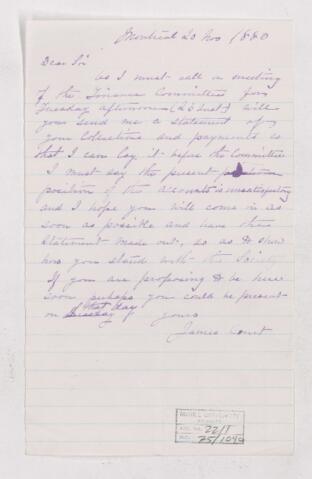 Montreal 20 Nov 1880
Dear Sir
As I must call a meeting
of the Finance Committee for
Tuesday afternoon (23 Inst) will
you send me a statement of
your Collections and payments so
that I can lay it before the Committee
I must say the present
position of the accounts is unsatisfactory
and I hope you will come in as
soon as possible and have the
statement made out, so as to show
how you stand with the Society
If you are proposing to be here
soon perhaps you could be present
that day
on Tuesday
Yours
James Court
22/1
75/1040